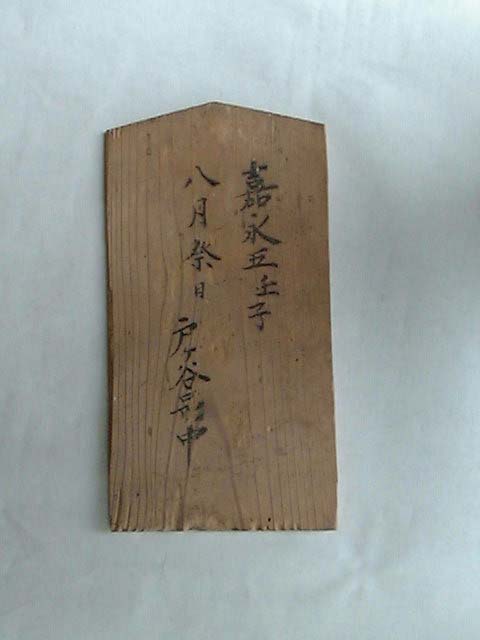 嘉永五壬子
八月祭日 戸ヶ谷号中